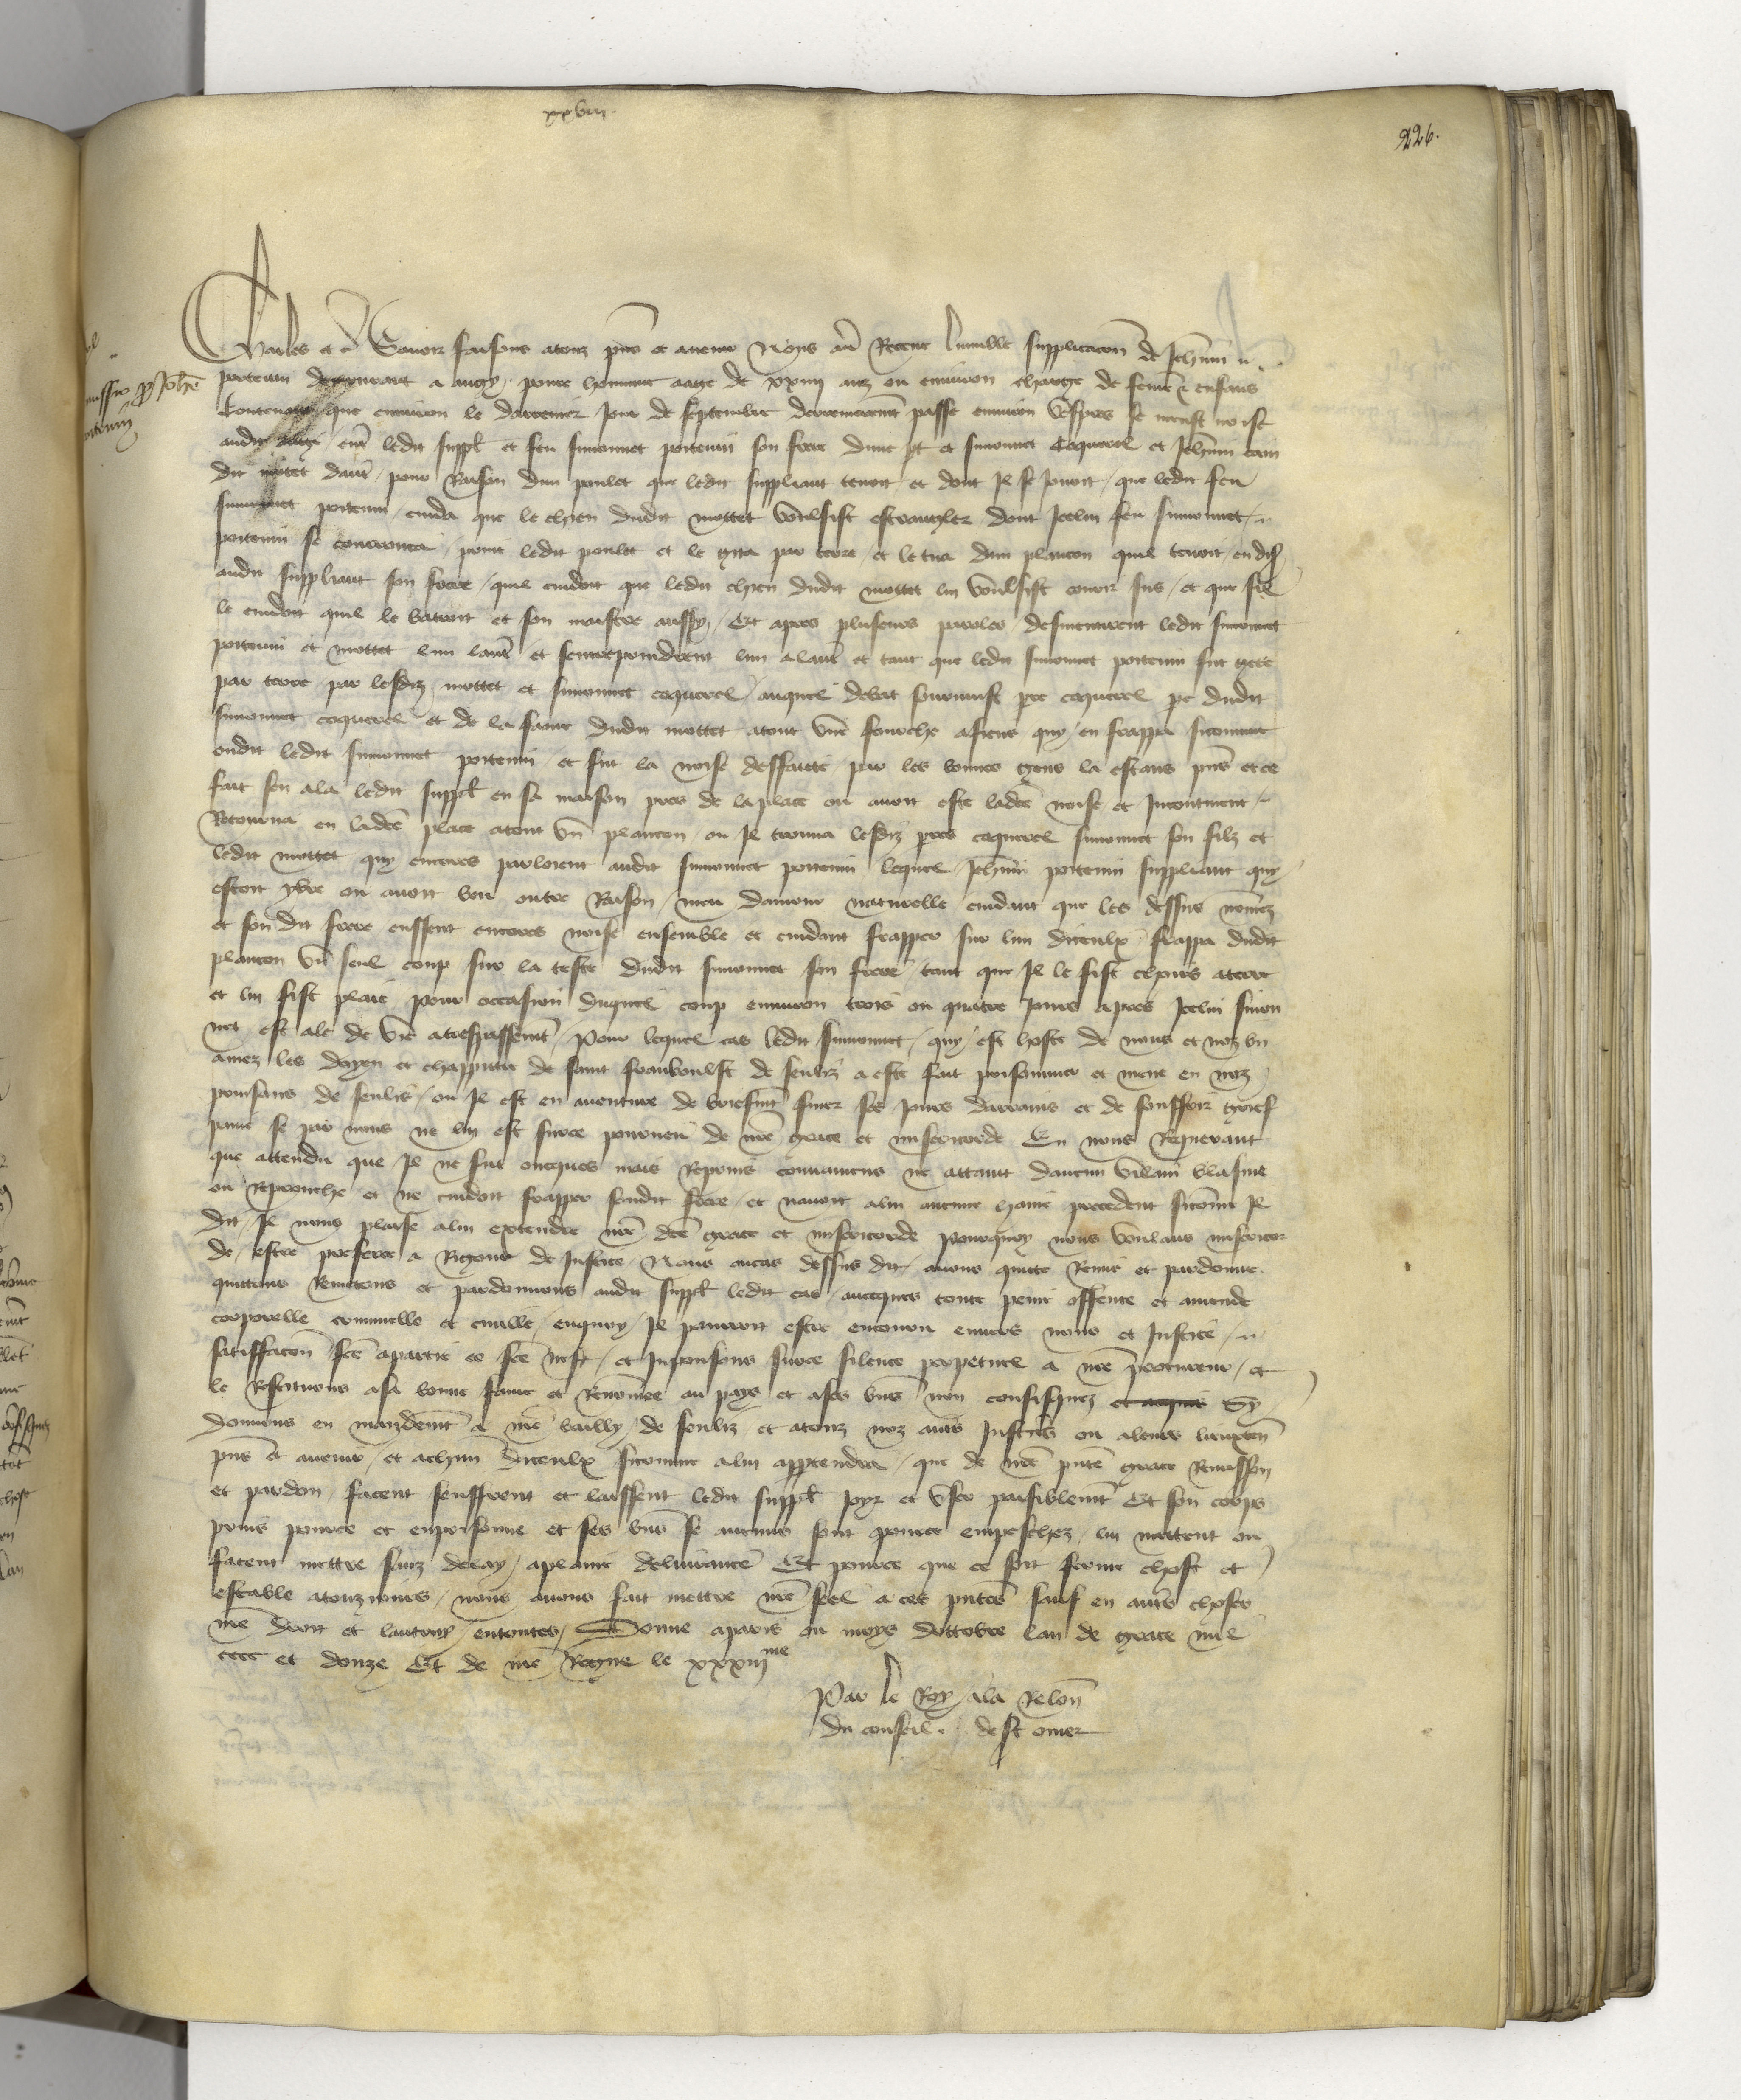 xxviii.
226.
missio p Joh̄e
portenin
Charles et c̄ Savoir faisons atouz p̄ns et avenir Nous av̄ Receue lumble supplicacōn de Jehānin
portenin demourant a augy, povre homme aage de xxiiii ans ou environ charge de feme & enfans
Contenant que environ le darrenier jour de septembre derrenierem̄t passe environ vespres se meust noise
audit augy entr̄ ledit suppl̄ et feu simonnet portenin son frere dune pt et simonnet Coquerel et Jehānin
dit mottet dautr̄, pour Raison dun poulet que ledit suppliant tenoit et dont Il se jouoit, que ledit feu
simonnet portenin, cuida que le chien dudit mottet voulsist estrangler dont Icelui feu simonnet
portenin se courrouca, print ledit poulet et le gita par terre, et le tua dun plancon quil tenoit, en dis̄
audit suppliant son frere, quil cuidoit que ledit chien dudit mottet lui voulsist courir sus, et que sil
le cuidoit quil le batroit et son maistre aussy, Et apres pluseurs paroles desmentirent ledit simonnet
portenin et mottet lun lautr̄ et sentreprindrent lun a lautr̄ et tant que ledit simonnet portenin fut gete
par terre par lesdiz mottet et simonnet coquerel, auquel debat sourvinst pre coquerel pe dudit
simonnet coquerel et de la fame dudit mottet atout vne fourche afiens quy en frappa sicomme
ondit ledit simonnet portenin et fut la noise deffaicte par les bonnes gens la estans p̄ns et ce
fait sen ala ledit suppl̄ en sa maison pres de la place ou avoit este lad̄ce noise et Incontinent
Retourna en lad̄ce place atout vn̄ plancon, ou Il trouva lesdiz pres coquerel simonnet son filz et
ledit mottet quy encores parloient audit simonnet portenin lequel Jehānin portenin suppliant quy
estoit yvre ou avoit beu outre Raison, meu damour naturelle cuidant que les dessus nom̄ez
et son dit frere eussent encores noise ensemble et cuidant frapper sur lun diceulx frappa dudit
plancon vn̄ seul coup sur la teste dudit simonnet son frere, tant que Il le fist cheoir aterre
et lui fist plaie, pour occasion duquel coup environ trois ou quatre jours apres Icelui simon
net est ale de vie atrespassem̄t, Pour lequel cas ledit simonnet, quy est hoste de nous et noz bn̄
amez les doyen et chappitre de saint framboulst de senliz a este fait prisonnier et mene en noz
prinsons de senlis, ou Il est en aventure de briefm̄t finer ses jours darrains et de souffrir grief
paine se par nous ne luy est surce pourveu de nr̄e grace et misericorde En nous Requerant
que attendu que Il ne fut oncques mais Reprins convaincus ne attaint daucun vilain blasme
ou Reprouche et ne cuidoit frapper sondit frere, et navoit alui aucune haine precedent sicom̄e Il
dit, Il nous plaise alui extendre nr̄e d̄ce grace et misericorde pourquoy nous voulans misericor
de estre preferee a Rigour de Justice, Nous aucas dessus dit, avons quitte Remis et pardonne
quittons Remetons et pardonnons audit suppl̄ ledit cas, avecques toute peine offense et amende
corporelle criminelle et civille, enquoy Il pourroit estre encouru envers nous et Justice,
satisfacōn fc̄e apartie se fc̄e nest, et Imposons surce silence perpetuel a nr̄e procureur, et
le Restituons asa bonne fame et Renom̄ee au pays et ases bn̄s non confisquez et acquis Sy
donnons en mandem̄t a nr̄e bailly de senliz et atouz noz autr̄s Justic̄rs ou aleurs lieuxten̄
p̄ns et avenir, et achūn diceulx sicomme alui appartendra, que de nr̄e p̄nte grace Remission
et pardon, facent seuffrent et laissent ledit suppl̄ joyr et vser paisiblem̄t Et son corps
prins pource et enprisonne et ses bn̄s se aucuns sont pource empeschez, lui mettent ou
facent mettre sanz delay, aplaine delivrance Et pource que ce soit ferme chose et
estable atouzjours, nous avons fait mettre nr̄e seel a ces p̄ntes sauf en autr̄s choses
nr̄e droit et lautruy, entoutes, Donne aparis ou moys doctobre lan de grace mil
cccc et douze Et de nr̄e Regne le xxxiii me
Par le Roy ala Relōn
du conseil. de st omer